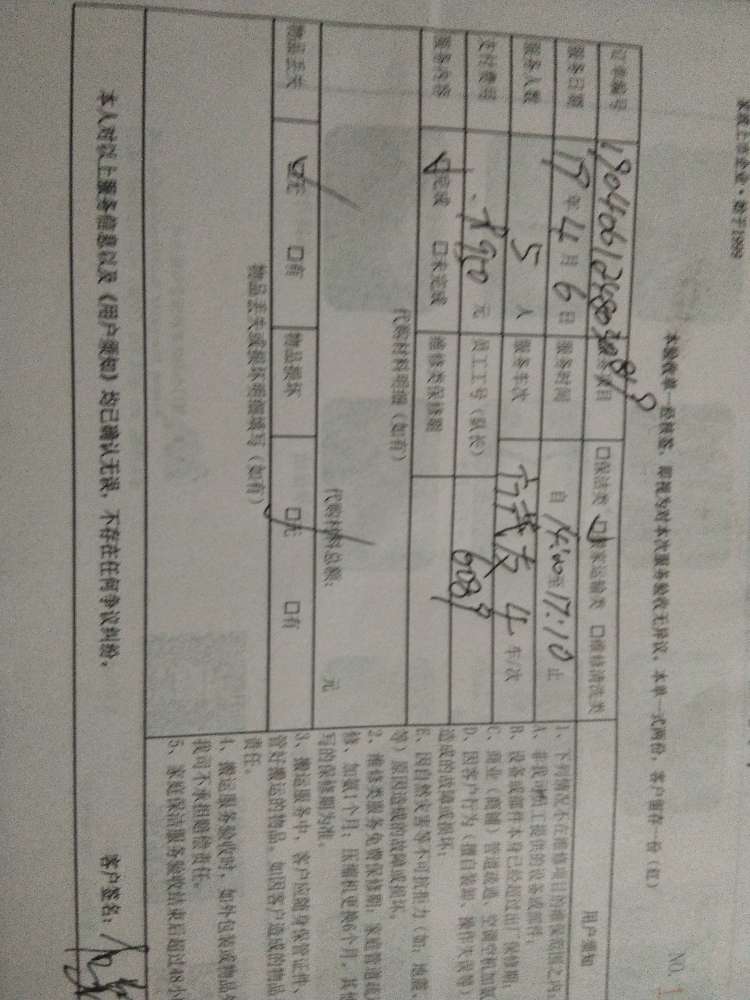 家政上市企业·始于1999
本验收单一经核签，即视为对本次服务验收无异议，本单一式两份，客户留存一份（红）
NO.
订单编号 服务项目 口保洁类 口搬家运输类 口维修清洗类
服务日期 19年4月6日 服务时间 自14:00至17:10止
服务人数 5人 服务车次 4车/次
支付费用 元 员工工号（队长） 6089
服务内容 口完成 口未完成 维修类保修期
代购材料明细（如有）
代购材料总额： 元
物品丢失 口无 口有 物品损坏 口无 口有
物品丢失或损坏明细填写（如有）
用户须知
1、下列情况不在维修项目的维保范围之内
A、非我司职工提供的设备或部件；
B、设备或部件本身已经超过出厂保修期；
C、商业（商铺）管道疏通、空调空机加氟
D、因客户行为（擅自装卸、操作失误等）
造成的故障或损坏；
E、因自然灾害等不可抗拒力（如：地震、
等）原因造成的故障或损坏。
2、维修类服务免费保修期：家庭管道疏
修、加氟1个月；压缩机更换6个月，其他
写的保修期为准。
3、搬运服务中，客户应随身保管证件、
管好搬运的物品，如因客户造成的物品
责任。
4、搬运服务验收时，如外包装或物品外
我司不承担赔偿责任。
5、家庭保洁服务验收结束后超过48小
本人对以上服务信息以及《用户须知》均已确认无误，不存在任何争议纠纷。 客户签名：